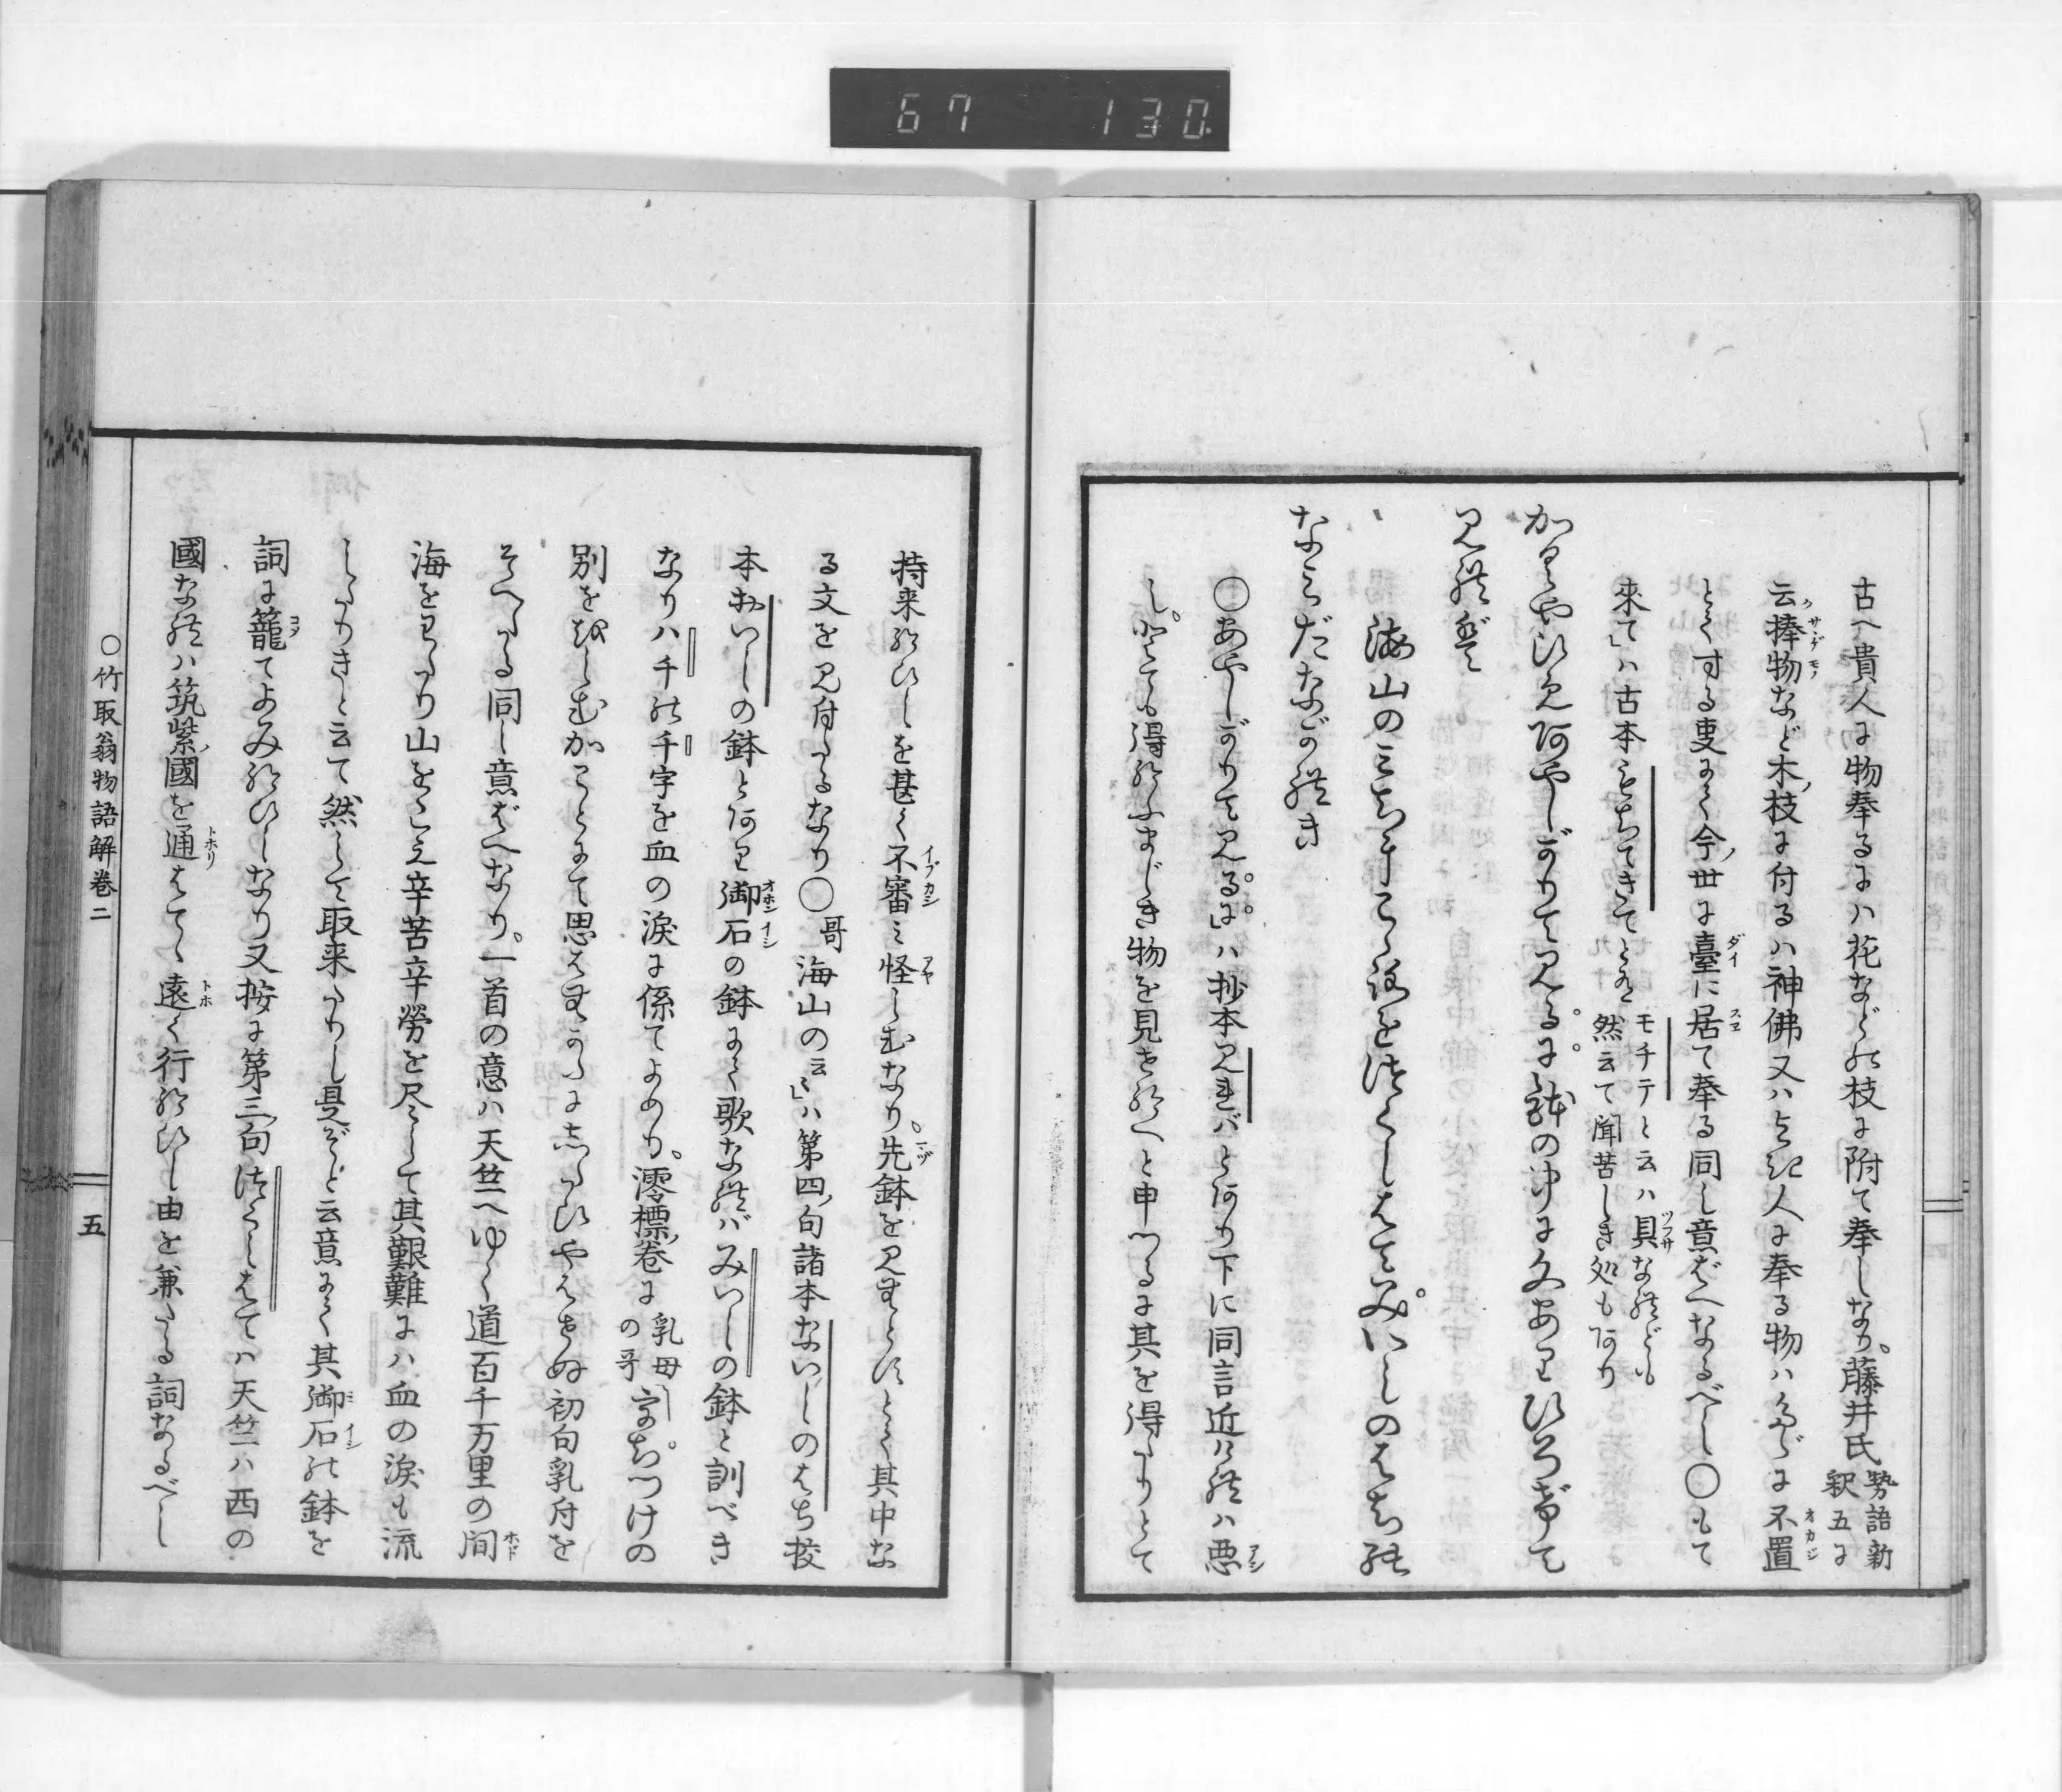 67 130
古へ貴人に物奉るには花などの枝に附て奉しなり、藤井氏 勢語新釈五に
云捧物など木枝に付るは神佛又はよき人に奉る物は
不置
とてする事にて今世に臺に居て奉る同し意ばへなるべし○もて
来ては古本もちてきてとあり モチテと云は具なれども然云て聞苦しき処もあり
かぐやひめあやしがりて見るに鉢の中に文ありひろげて
見れば
海山のみちにこゝろをつくしはてみいしのはちの
なみだながれき
○あやしがりて見るには抄本見ればとあり下に同言近ければ悪
し。とても得給ふまじき物を見せ給へと申つるに其を得たりとて
持来給ひしを甚く不審み怪しむなり。先鉢を見すとひとく其中な
る文を見付たるなり○哥海山の云〻は第四句諸本ないしのはち校
本おいしの鉢とあり御石の鉢にて歌なればみいしの鉢と訓べき
なりハ千の千字を血の涙に係てよめり。澪標巻に 乳母の哥 うちつけの
別をおしむかことにて思はむかたにしたひやはせぬ初句乳付を
そへたる同し意ばへなり。一首の意は天竺へゆく道百千万里の間
海をわたり山をこえ辛苦辛勞を尽して其艱難には血の涙も流
したりきと云て然して取来たりし具ぞと云意にて其御石の鉢を
詞に籠てよみ給ひしなり又按に第三句つくしはては天竺は西の
國なれは筑紫國を通はてゝ遠く行給ひし由を兼たる詞なるべし
○竹取翁物語解巻二
五